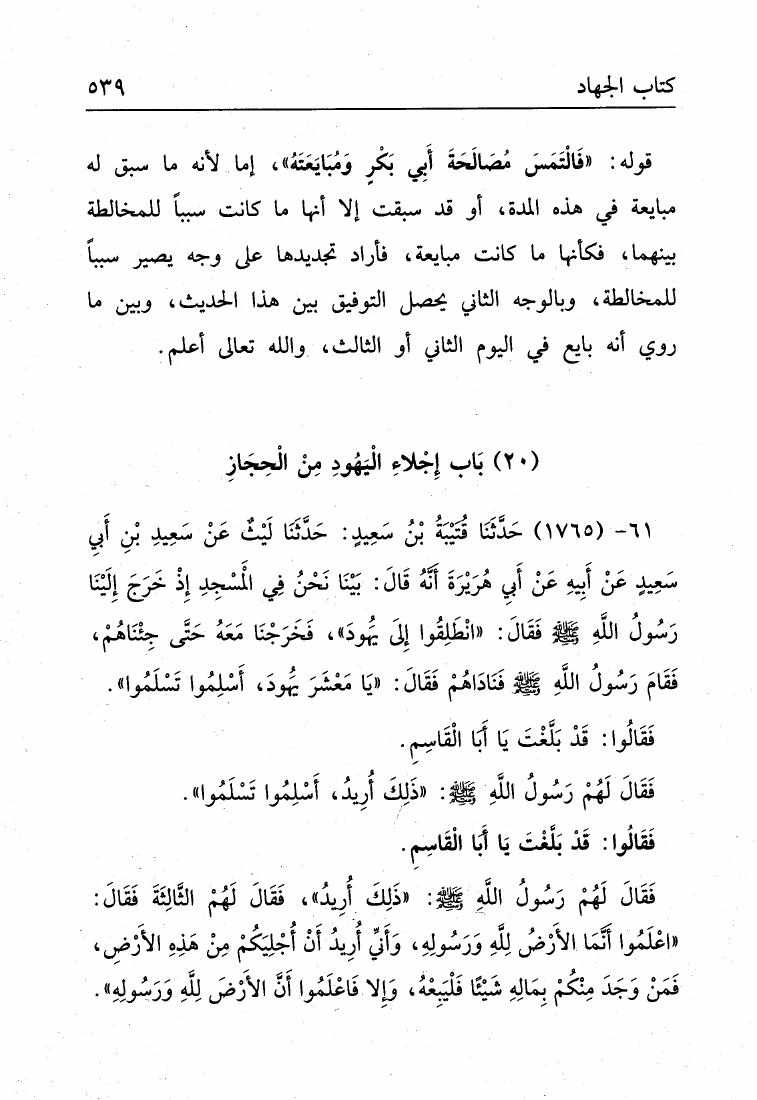 كتاب الجهاد ٥٣٩
قوله: «فَالْتَمَسَ مُصَالَحَةَ أَبِي بَكْرٍ وَمُبَايَعَتَهُ»، إما لأنه ما سبق له
مبايعة في هذه المدة، أو قد سبقت إلا أنها ما كانت سبباً للمخالطة
بينهما، فكأنها ما كانت مبايعة، فأراد تجديدها على وجه يصير سبباً
للمخالطة، وبالوجه الثاني يحصل التوفيق بين هذا الحديث، وبين ما
روي أنه بايع في اليوم الثاني أو الثالث، والله تعالى أعلم.
(٢٠) بَاب إِجْلاءِ الْيَهُودِ مِنْ الْحِجَازِ
٦١- (١٧٦٥) حَدَّثَنَا قُتَيْبَةُ بْنُ سَعِيدٍ: حَدَّثَنَا لَيْثٌ عَنْ سَعِيدِ بْنِ أَبِي
سَعِيدٍ عَنْ أَبِيهِ عَنْ أَبِي هُرَيْرَةَ أَنَّهُ قَالَ: بَيْنَا نَحْنُ فِي الْمَسْجِدِ إِذْ خَرَجَ إِلَيْنَا
رَسُولُ اللَّهِ ﷺ فَقَالَ: «انْطَلِقُوا إِلَى يَهُودَ»، فَخَرَجْنَا مَعَهُ حَتَّى جِئْنَاهُمْ،
فَقَامَ رَسُولُ اللَّهِ ﷺ فَنَادَاهُمْ فَقَالَ: «يَا مَعْشَرَ يَهُودَ، أَسْلِمُوا تَسْلَمُوا».
فَقَالُوا: قَدْ بَلَّغْتَ يَا أَبَا الْقَاسِمِ.
فَقَالَ لَهُمْ رَسُولُ اللَّهِ ﷺ: «ذَلِكَ أُرِيدُ، أَسْلِمُوا تَسْلَمُوا».
فَقَالُوا: قَدْ بَلَّغْتَ يَا أَبَا الْقَاسِمِ.
فَقَالَ لَهُمْ رَسُولُ اللَّهِ ﷺ: «ذَلِكَ أُرِيدُ»، فَقَالَ لَهُمْ الثَّالِثَةَ فَقَالَ:
«اعْلَمُوا أَنَّمَا الأَرْضُ لِلَّهِ وَرَسُولِهِ، وَأَنِّي أُرِيدُ أَنْ أُجْلِيَكُمْ مِنْ هَذِهِ الأَرْضِ،
فَمَنْ وَجَدَ مِنْكُمْ بِمَالِهِ شَيْئًا فَلْيَبِعْهُ، وَإِلا فَاعْلَمُوا أَنَّ الأَرْضَ لِلَّهِ وَرَسُولِهِ».